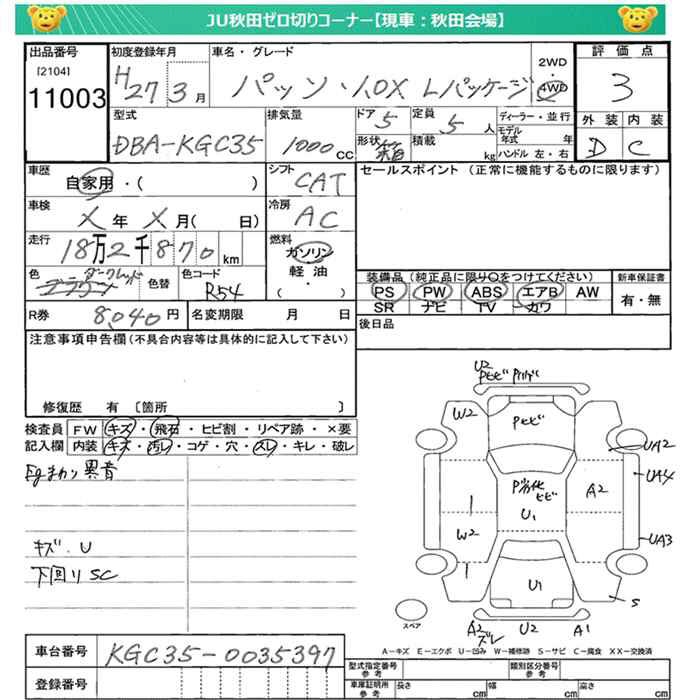 JU秋田ゼロ切りコーナー【現車：秋田会場】
出品番号
[2104]
11003
初度登録年月
H27 3月
車名・グレード
パッソ・1.0X Lパッケージ
2WD
4WD
評価点
3
外装 内装
D C
型式
DBA-KGC35
排気量
1000 CC
ドア
5
定員
5 人
形状
積載
kg
ディーラー・並行
モデル年式 年
ハンドル 左・右
車歴
自家用・( )
シフト
CAT
セールスポイント (正常に機能するものに限ります)
車検
X年X月( 日)
冷房
AC
走行
18万2千870km
燃料
ガソリン
軽油
( ・ )
色
ダークレッド
ブラウン
色替
色コード
R54
装備品(純正品に限り○をつけてください)
PS PW ABS エアB AW
SR ナビ TV カワ
新車保証書
有・無
R券 8,040円
名変期限 月 日
後日品
注意事項申告欄(不具合内容等は具体的に記入して下さい)
修復歴 有 〔箇所 〕
検査員記入欄
FW キズ・飛石・ヒビ割・リペア跡・×要
内装 キズ・汚レ・コゲ・穴・スレ・キレ・破レ
Egまわり異音
キズ.U
下回りSC
U2
PヒビPハゲ
W2
Pヒビ
UA2
UA4
P劣化
ヒビ
A2
U1
W2
UA3
U1
S
スペア
A2
ズレ
U2
A1
A－キズ E－エクボ U－凹み W－補修跡 S－サビ C－腐食 XX－交換済
車台番号 KGC35-0035397
登録番号
型式指定番号
参考
類別区分番号
参考
車庫証明用
参考
長さ cm 幅 cm 高さ cm